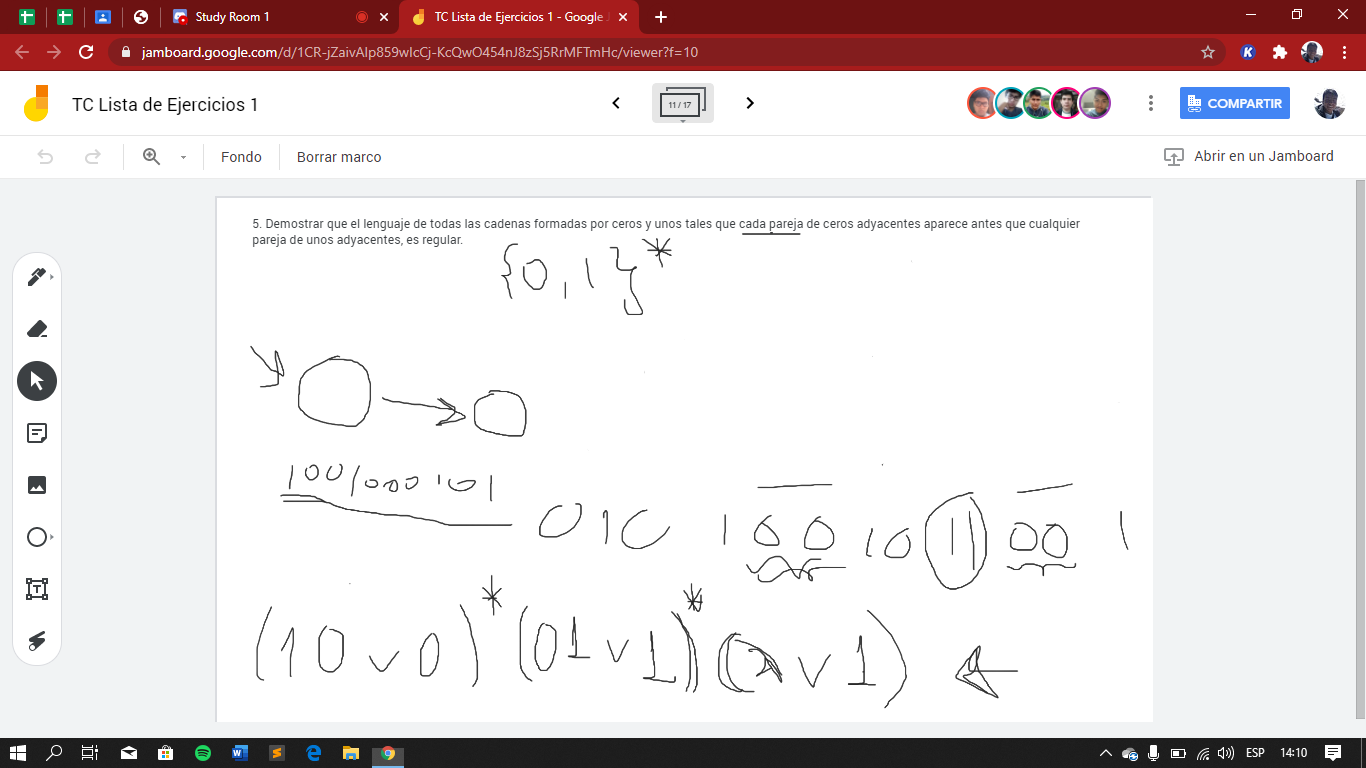 Study Room 1
TC Lista de Ejercicios 1 - Google J
jamboard.google.com/d/1CR-jZaivAlp859wIcCj-KcQwO454nJ8zSj5RrMFTmHc/viewer?f=10
TC Lista de Ejercicios 1
11 / 17
COMPARTIR
Fondo
Borrar marco
Abrir en un Jamboard
5. Demostrar que el lenguaje de todas las cadenas formadas por ceros y unos tales que cada pareja de ceros adyacentes aparece antes que cualquier
pareja de unos adyacentes, es regular.
{0,1}*
1001000101
010 100 10 11 00 1
(10 v 0)* (01 v 1)* ( v 1)
ESP 14:10